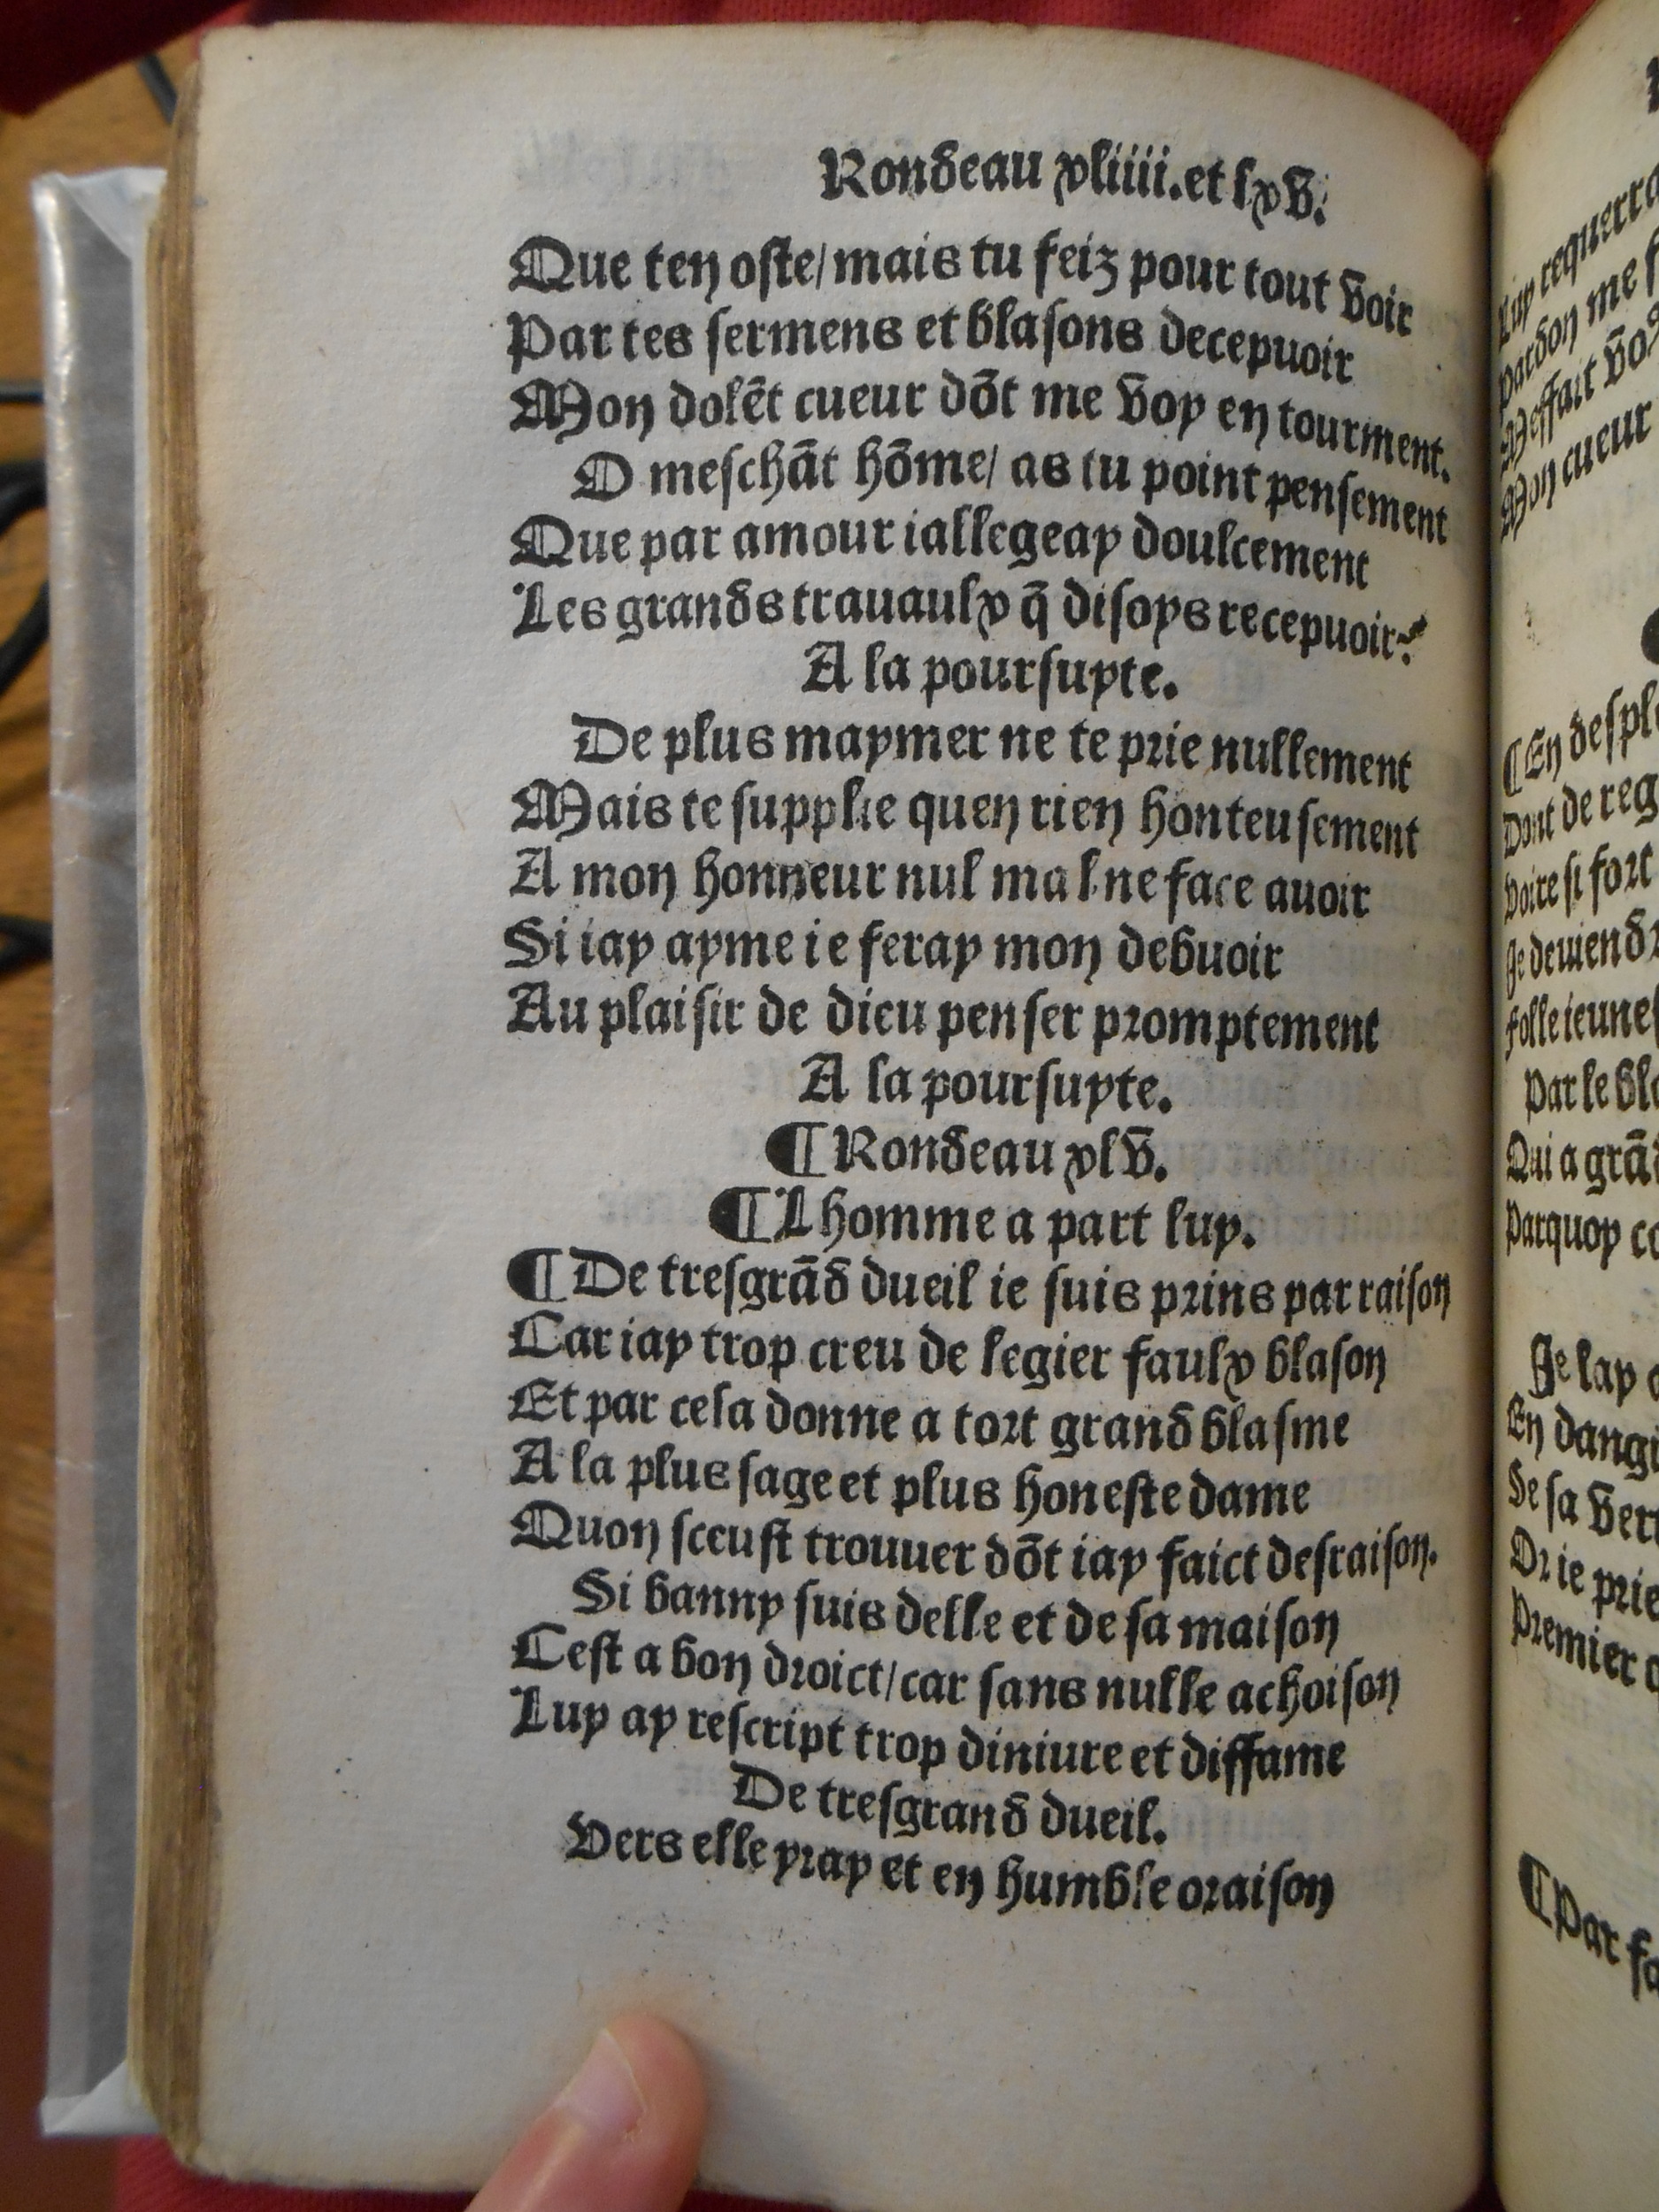 Rondeau xliiii. et lxv.
Que ten oste/ mais tu feiz pour tout voir
Par tes sermens et blasons decepuoir
Mon dolēt cueur dōt me voy en tourment.
O meschāt hōme/ as tu point pensement
Que par amour iallegeay doulcement
Les grands trauaulx q̄ disoys recepuoir?
A la poursuyte.
De plus maymer ne te prie nullement
Mais te supplie quen rien honteusement
A mon honneur nul mal ne face auoir
Si iay ayme ie feray mon debuoir
Au plaisir de dieu penser promptement
A la poursuyte.
¶ Rondeau xlv.
¶ Lhomme a part luy.
¶ De tresgrād dueil ie suis prins par raison
Car iay trop creu de legier faulx blason
Et par cela donne a tort grand blasme
A la plus sage et plus honeste dame
Quon sceust trouuer dōt iay faict desraison.
Si banny suis delle et de sa maison
Cest a bon droict/ car sans nulle achoison
Luy ay rescript trop diniure et diffame
De tresgrand dueil.
Vers elle yray et en humble oraison
Luy
pardon me
Meffait
Mon cueur
¶ En despl
Dont de reg
Voire si fort
Je deuiendr
Folle ieunes
Par le bl
Qui a grād
Parquoy co
Je lay
En dangi
De sa ver
Or ie prie
Premier
¶ Par fa